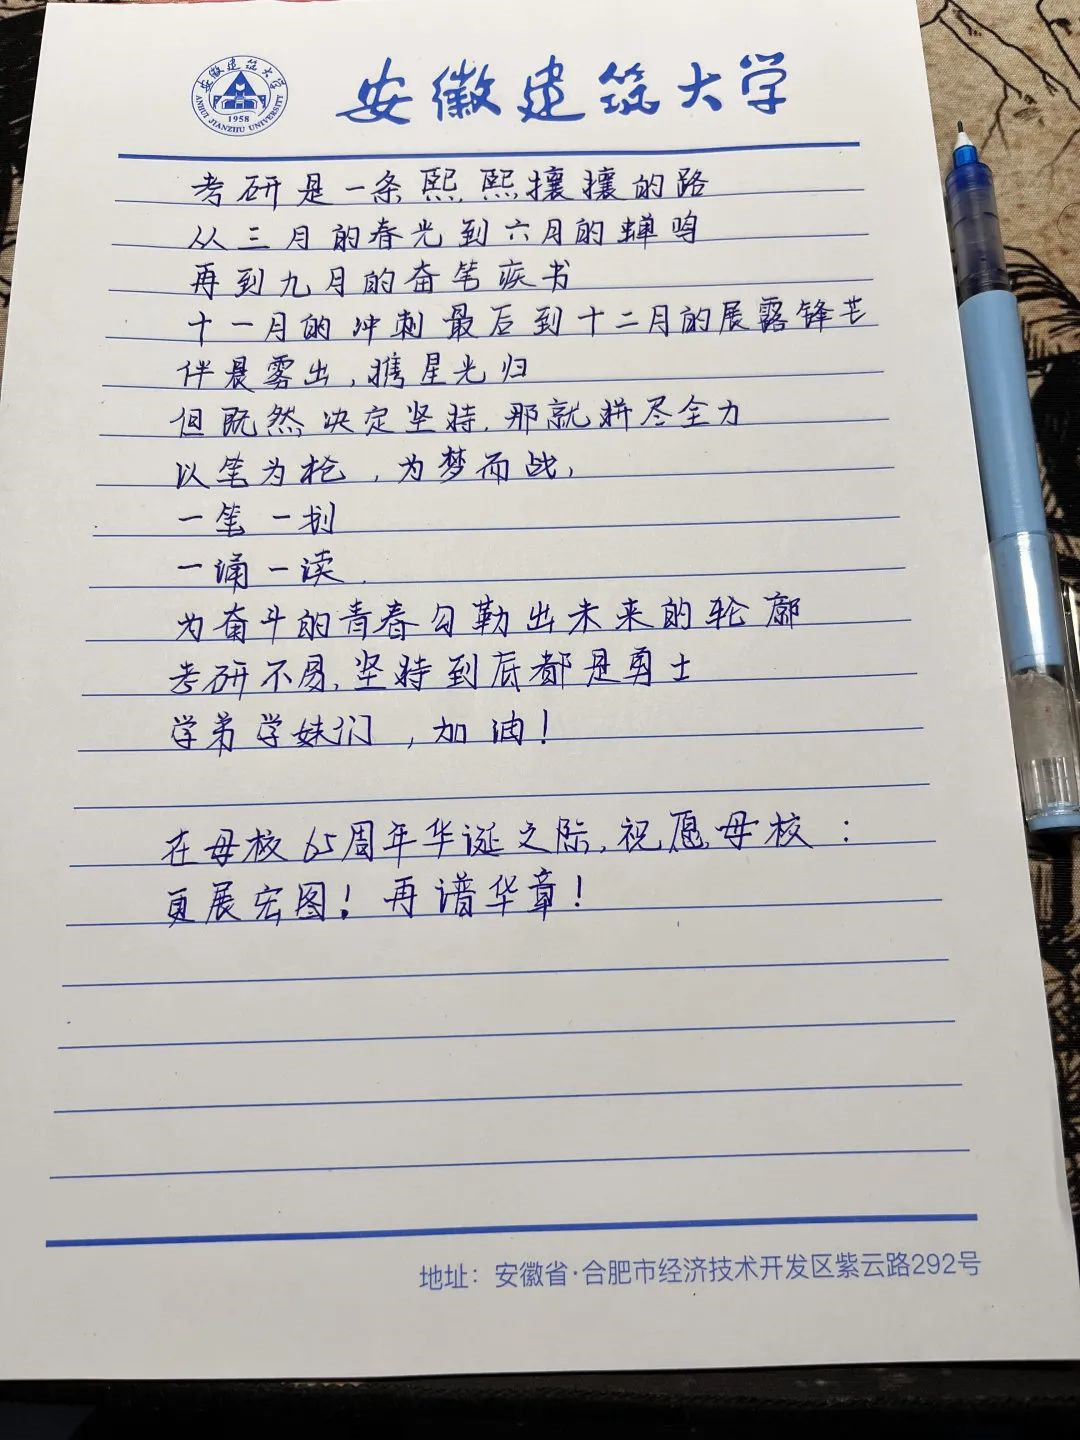 安徽建筑大学
安徽建筑大学
ANHUI JIANZHU UNIVERSITY
1958
考研是一条熙熙攘攘的路
从三月的春光到六月的蝉鸣
再到九月的奋笔疾书
十一月的冲刺最后到十二月的展露锋芒
伴晨雾出,携星光归
但既然决定坚持,那就拼尽全力
以笔为枪,为梦而战,
一笔一划
一诵一读.
为奋斗的青春勾勒出未来的轮廓
考研不易,坚持到底都是勇士
学弟学妹们,加油!
在母校65周年华诞之际,祝愿母校:
更展宏图!再谱华章!
地址:安徽省·合肥市经济技术开发区紫云路292号